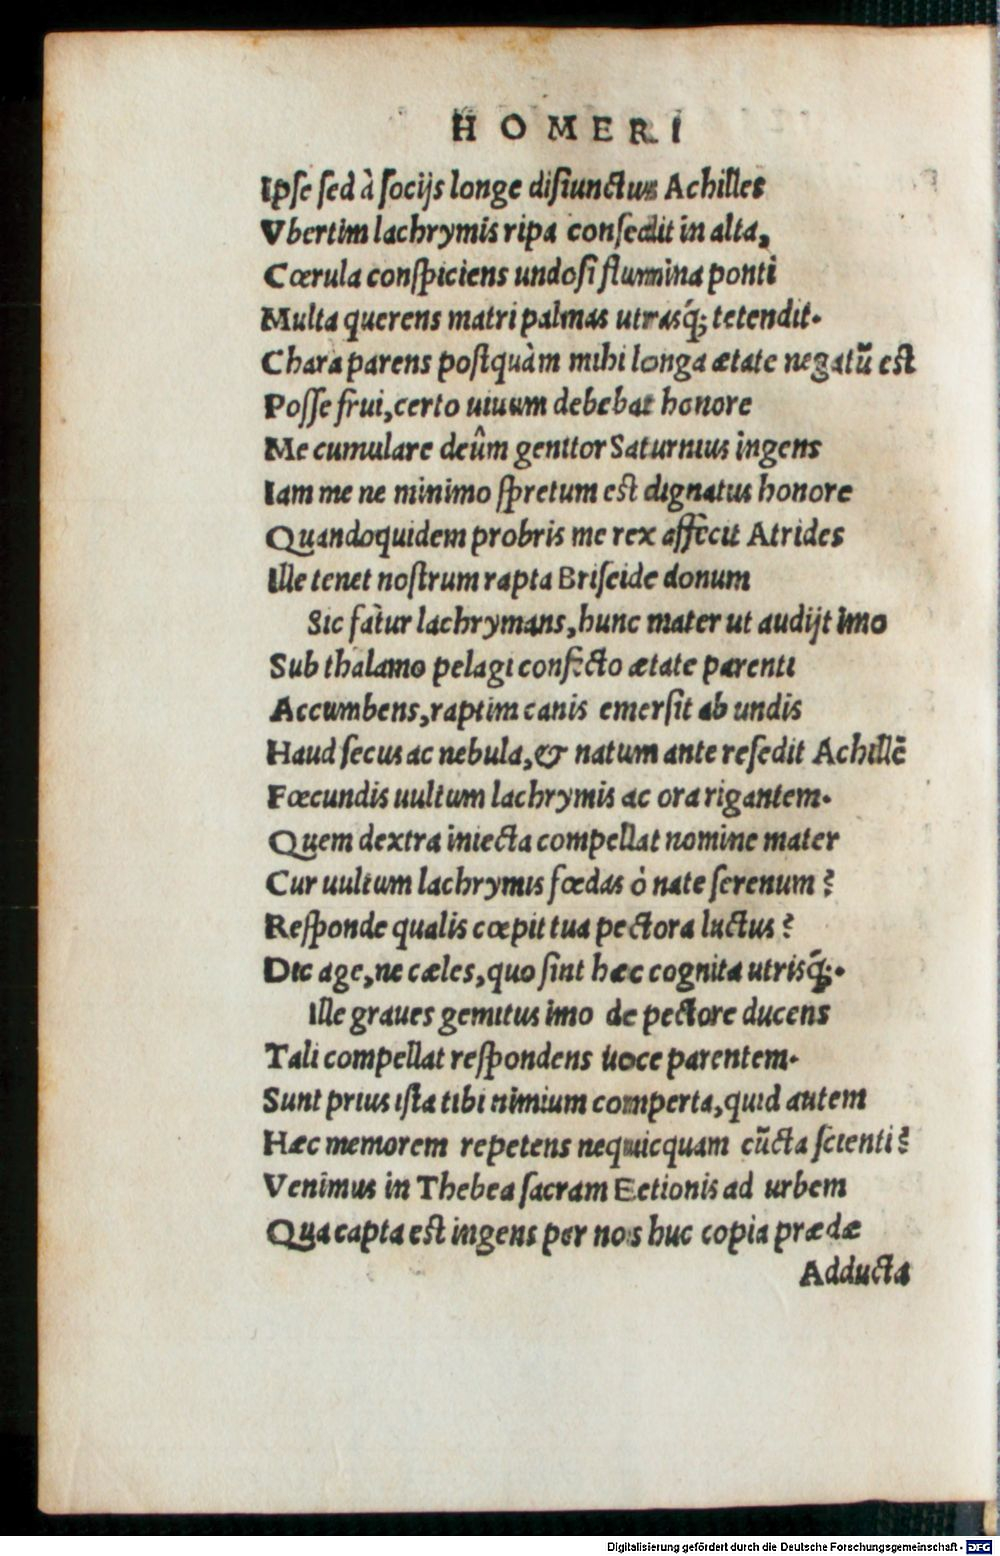 HOMERI
Ipse sed à socijs longe disiunctus Achilles
Vbertim lachrymis ripa consedit in alta,
Cœrula conspiciens undosi flumina ponti
Multa querens matri palmas utrasq́; tetendit.
Chara parens postquàm mihi longa ætate negatũ est
Posse frui, certo uiuum debebat honore
Me cumulare deûm genitor Saturnius ingens
Iam me ne minimo spretum est dignatus honore
Quandoquidem probris me rex affecit Atrides
Ille tenet nostrum rapta Briseide donum
Sic fatur lachrymans, hunc mater ut audijt imo
Sub thalamo pelagi confecto ætate parenti
Accumbens, raptim canis emersit ab undis
Haud secus ac nebula, & natum ante resedit Achillẽ
Fœcundis uultum lachrymis ac ora rigantem.
Quem dextra iniecta compellat nomine mater
Cur uultum lachrymis fœdas ò nate serenum?
Responde qualis cœpit tua pectora luctus?
Dic age, ne cæles, quo sint hæc cognita utrisq́;.
Ille graues gemitus imo de pectore ducens
Tali compellat respondens uoce parentem.
Sunt prius ista tibi nimium comperta, quid autem
Hæc memorem repetens nequicquam cũcta scienti?
Venimus in Thebea sacram Eetionis ad urbem
Qua capta est ingens per nos huc copia prædæ
Adducta
Digitalisierung gefördert durch die Deutsche Forschungsgemeinschaft - DFG